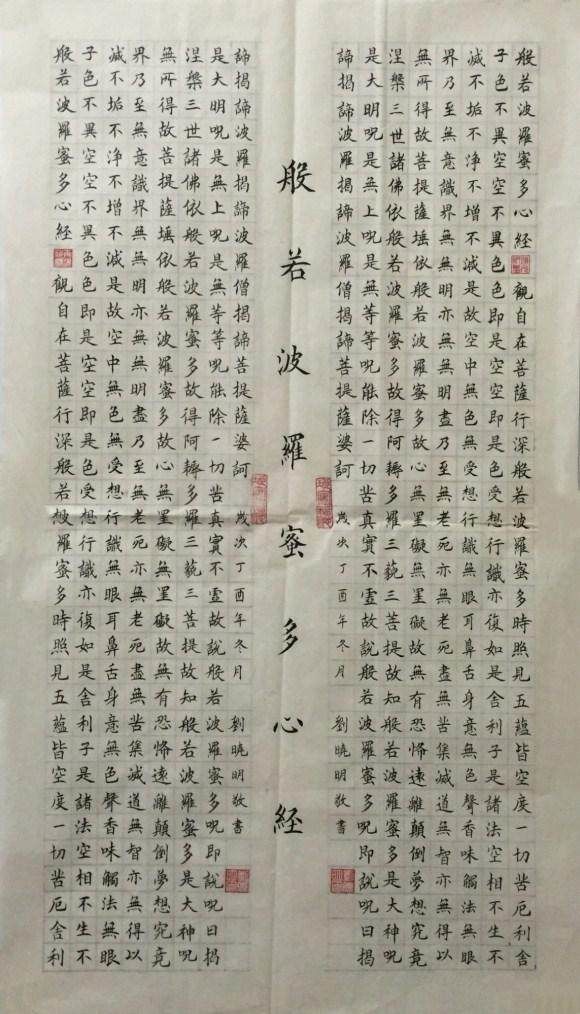 般若波羅蜜多心經觀自在菩薩行深般若波羅蜜多時照見五蘊皆空度一切苦厄利舍
子色不異空空不異色色即是空空即是色受想行識亦復如是舍利子是諸法空相不生不
滅不垢不淨不增不減是故空中無色無受想行識無眼耳鼻舌身意無色聲香味觸法無眼
界乃至無意識界無無明亦無無明盡乃至無老死亦無老死盡無苦集滅道無智亦無得以
無所得故菩提薩埵依般若波羅蜜多故心無罣礙無罣礙故無有恐怖遠離顛倒夢想究竟
涅槃三世諸佛依般若波羅蜜多故得阿耨多羅三藐三菩提故知般若波羅蜜多是大神呪
是大明呪是無上呪是無等等呪能除一切苦真實不虛故說般若波羅蜜多呪即說呪曰揭
諦揭諦波羅揭諦波羅僧揭諦菩提薩婆訶 歲次丁酉年冬月 劉曉明敬書
般若波羅蜜多心經
般若波羅蜜多心經觀自在菩薩行深般若般羅蜜多時照見五蘊皆空度一切苦厄舍利
子色不異空空不異色色即是空空即是色受想行識亦復如是舍利子是諸法空相不生不
滅不垢不淨不增不減是故空中無色無受想行識無眼耳鼻舌身意無色聲香味觸法無眼
界乃至無意識界無無明亦無無明盡乃至無老死亦無老死盡無苦集滅道無智亦無得以
無所得故菩提薩埵依般若波羅蜜多故心無罣礙無罣礙故無有恐怖遠離顛倒夢想究竟
涅槃三世諸佛依般若波羅蜜多故得阿耨多羅三藐三菩提故知般若波羅蜜多是大神呪
是大明呪是無上呪是無等等呪能除一切苦真實不虛故說般若波羅蜜多呪即說呪曰揭
諦揭諦波羅揭諦波羅僧揭諦菩提薩婆訶 歲次丁酉年冬月 劉曉明敬書